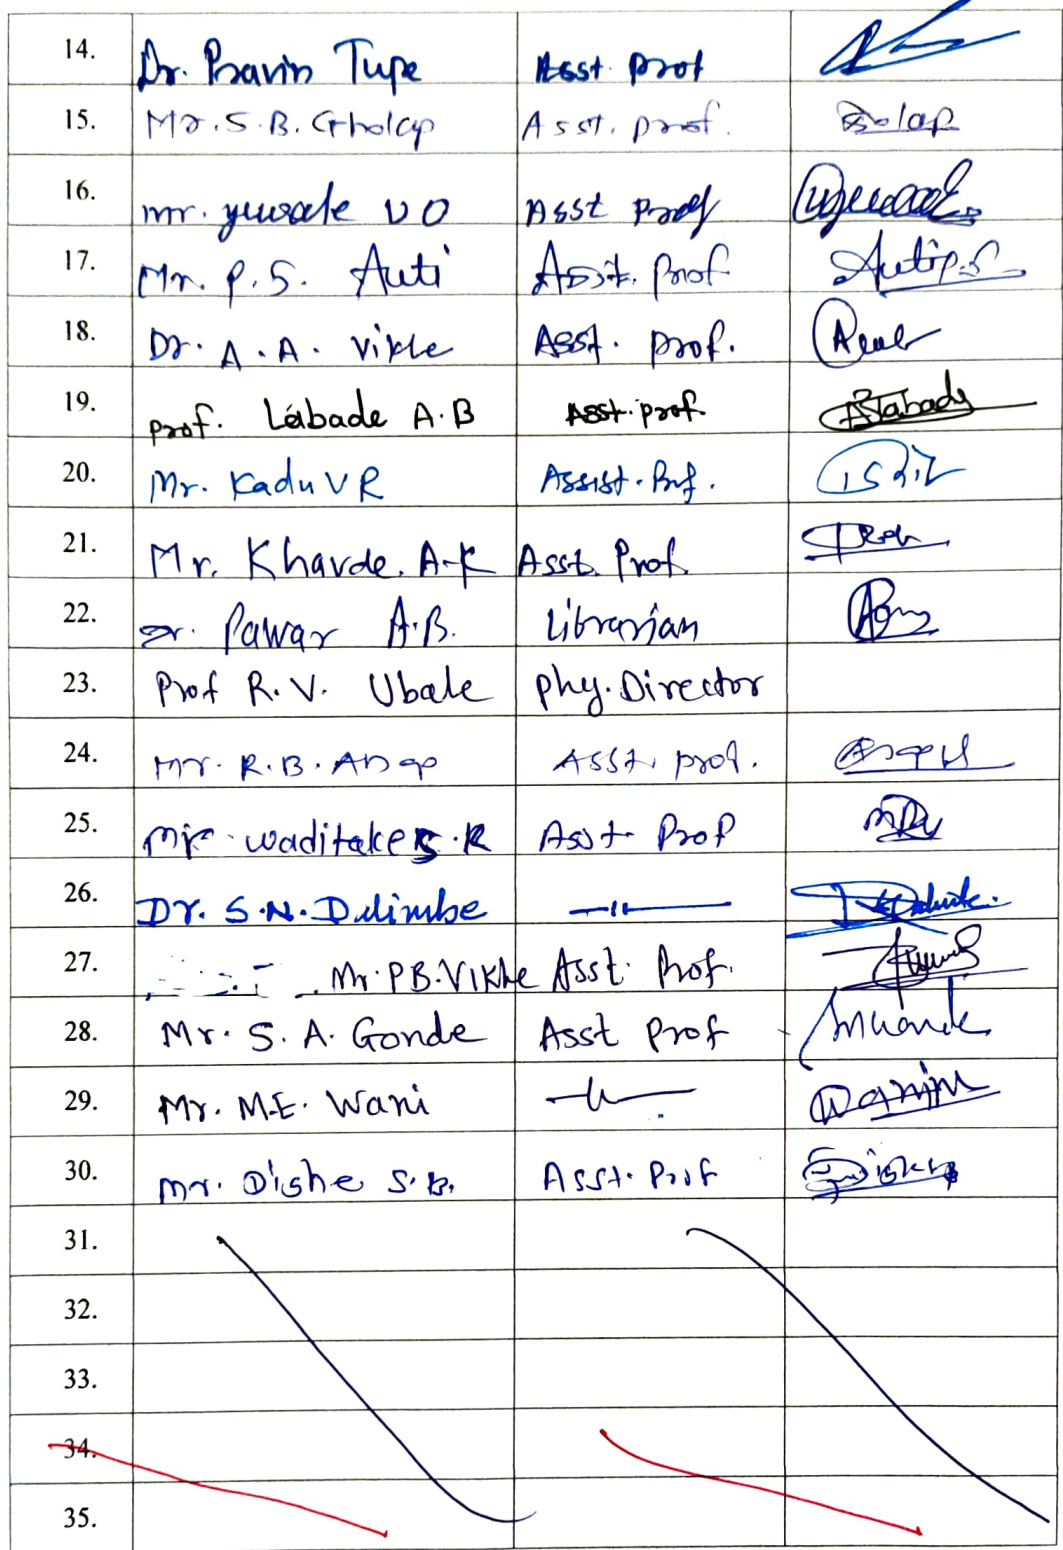 14. Dr. Pravin Tupe Asst. prof
15. Mr. S. B. Gholap Asst. prof. Golap
16. mr. yewale V O Asst prof
17. Mr. P. S. Auti Asst. Prof Autip.S.
18. Dr. A. A. Vikhe Asst. prof.
19. prof. Labade A.B Asst. prof.
20. Mr. Kadu V R Assist. Prof.
21. Mr. Kharde. A.K Asst. Prof.
22. Dr. Pawar A.B. Librarian
23. Prof R. V. Ubale phy. Director
24. Mr. R. B. Anap Asst. prof.
25. Mr. waditake S. R Asst. Prof
26. Dr. S.N. Dalimbe —"—
27. Mr. P B. Vikhe Asst. Prof.
28. Mr. S. A. Gonde Asst Prof
29. Mr. M.E. Wani —"—
30. Mr. Dighe S. B. Asst. Prof
31.
32.
33.
34.
35.